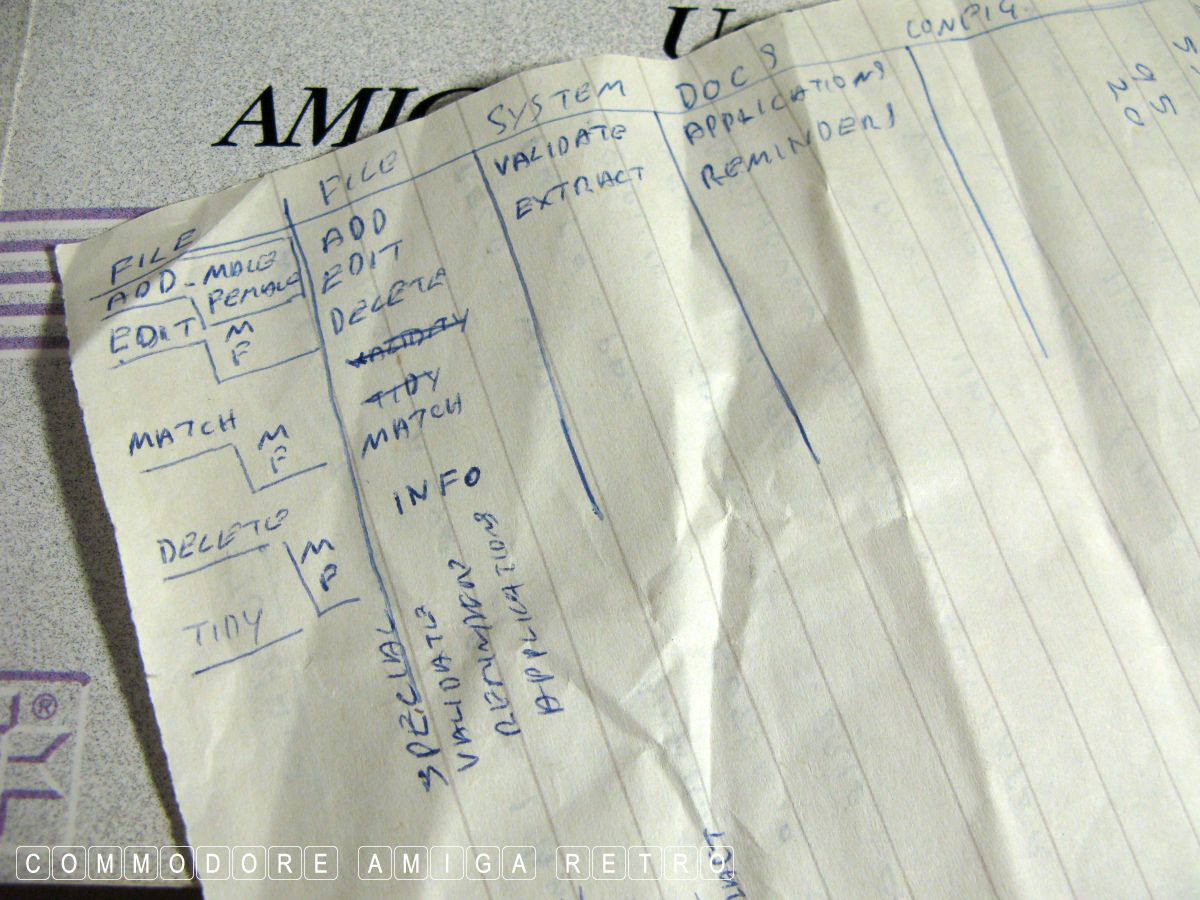 U
AMIG
FILE
ADD - MALE
FEMALE
EDIT
M
F
MATCH
M
F
DELETE
M
F
TIDY
FILE
ADD
EDIT
DELETE
VALIDITY
TIDY
MATCH
INFO
SYSTEM
VALIDATE
EXTRACT
DOCS
APPLICATIONS
REMINDERS
CONFIG.
95
20
SPECIAL
VALIDATE
REMINDERS
APPLICATIONS
®
COMMODORE AMIGA RETRO